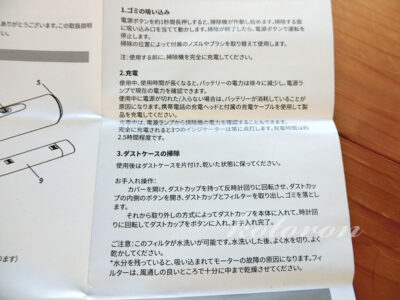 ありがとうございます。この取扱説明
ださい。
1.ゴミの吸い込み
電源ボタンを約1秒間長押しすると、掃除機が作動し始めます。掃除する面
に吸い込み口を当てて動かします。掃除が終了したら、電源ボタンで運転を
停止します。
掃除の位置によって付属のノズルやブラシを取り替えて使用します。
注:使用する前に、掃除機を完全に充電してください。
2.充電
使用中、使用時間が長くなると、バッテリーの電力は徐々に減少し、電源ラ
ンプで現在の電力を確認できます。
使用中に電源が切れた/入らない場合は、バッテリーが消耗していることが
原因になります。携帯電話の充電ヘッドと付属の充電ケーブルを使用して製
品を充電してください。
充電中は、電源ランプから掃除機の電力を確認することもできます。
完全に充電されると3つのインジケーターは常に点灯します。充電時間は約
2.5時間程度です。
3.ダストケースの掃除
使用後はダストケースを片付け、乾いた状態に保ってください。
お手入れ操作:
カバーを開け、ダストカップを持って反時計回りに回転させ、ダストカッ
プの内側のボタンを開き、ダストカップとフィルターを取り出し、ゴミを落とし
ます。
それから取り外しの方式によってダストカップを本体に入れて、時計回
りに回転してダストカップをボタンに入れ、お手入れ完了。
ご注意:このフィルタが水洗いが可能です。水洗いした後、よく水を切り、よく
乾かしてください。
*水分を残っていると、吸い込まれてモーターの故障の原因になります。フィ
ルターは、風通しの良いところで十分に中まで乾燥させてください。
5
9